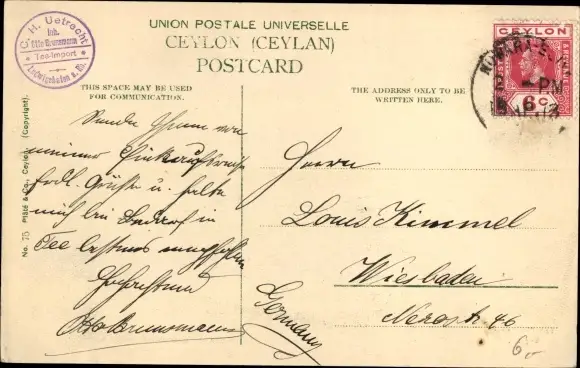 C. H. Uetrecht
Inh.
Otto Brunsmann
Tee-Import
Ludwigshafen a. Rh.
UNION POSTALE UNIVERSELLE
CEYLON (CEYLAN)
POSTCARD
THIS SPACE MAY BE USED
FOR COMMUNICATION.
THE ADDRESS ONLY TO BE
WRITTEN HERE.
CEYLON
6c
PM
No. 75 Plâté & Co., Ceylon. (Copyright).
Sende Ihnen von
meiner Einkaufsreise
frdl. Grüße u. halte
mich bei Bedarf in
Tee bestens empfohlen
Hochachtend
Otto Brunsmann
Herrn
Louis Kimmel
Wiesbaden
Nerostr. 46
Germany
6,-